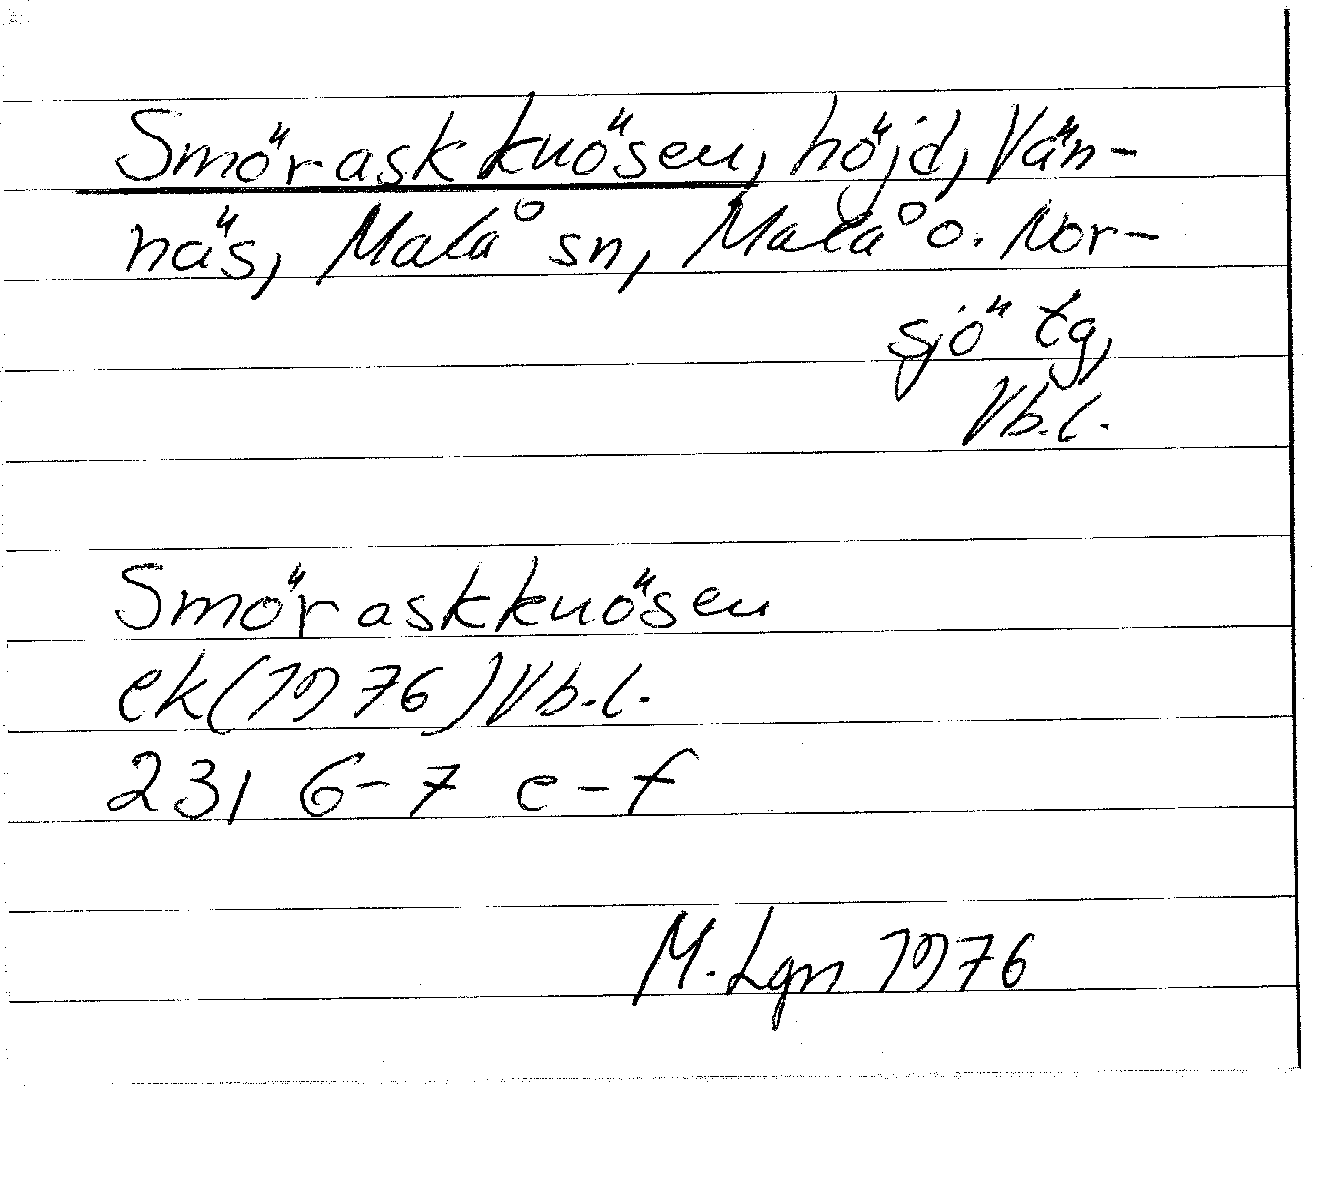 Smöraskknösen, höjd, Vän-
näs, Malå sn, Malå o. Nor-
sjö tg,
Vb.l.
Smöraskknösen
ek (1976) Vb.l.
23I 6-7 e-f
M. Lgn 1976